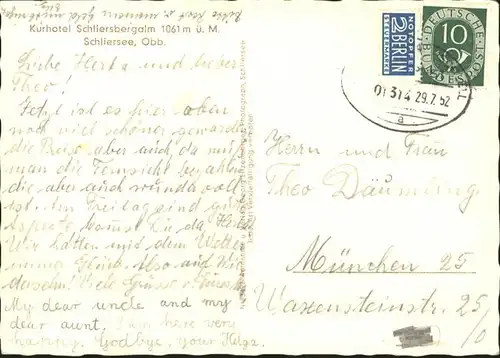 Bitte Karte u. meinem Geld mitbringen
Kurhotel Schliersbergalm 1061 m ü. M.
Schliersee, Obb.
Liebe Herta und lieber
Theo!
Jetzt ist es hier oben
noch viel schöner geworden
die Preise aber auch da muß
man die Fernsicht bezahlen
die aber auch wundavoll
ist. Am Freitag sind gute
Aspekte komst Du da, Herta
Wir hatten mit dem Wetter
Glück. Also auf Wie
dersehn! Viele Grüsse
My dear uncle and my
dear aunt. I am here very
happy. Goodbye, your Helga.
NOTOPFER
2 BERLIN
STEUERMARKE
DEUTSCHE BUNDESPOST
10
01314 29.7.52
a
Herrn und Frau
Theo Däumling
München 25
Waxensteinstr. 25/0